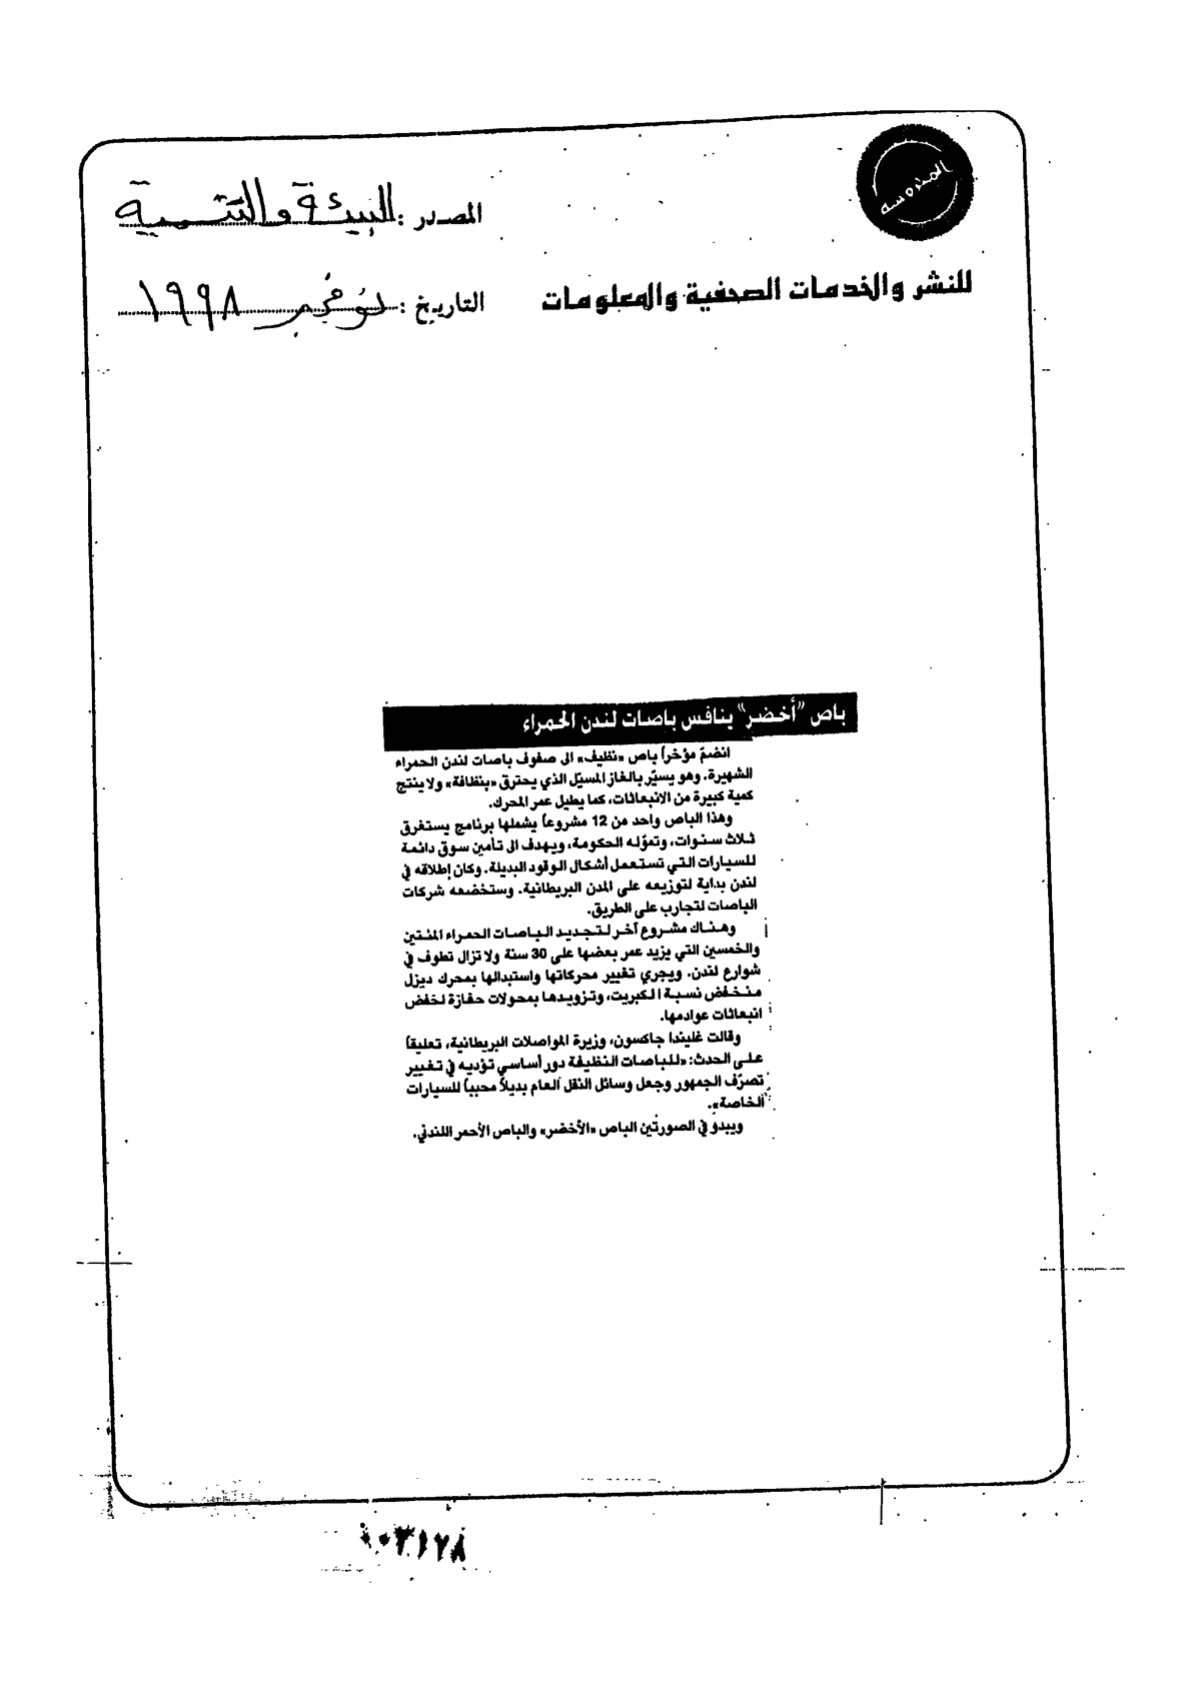 المحروسة
المصدر : البيئة والتنمية
للنشر والخدمات الصحفية والمعلومات
التاريخ : نوفمبر ١٩٩٨
باص "أخضر" ينافس باصات لندن الحمراء
انضمّ مؤخراً باص «نظيف» الى صفوف باصات لندن الحمراء
الشهيرة. وهو يسيّر بالغاز المسيّل الذي يحترق «بنظافة» ولا ينتج
كمية كبيرة من الانبعاثات، كما يطيل عمر المحرك.
وهذا الباص واحد من 12 مشروعاً يشملها برنامج يستغرق
ثلاث سنوات، وتموّله الحكومة، ويهدف الى تأمين سوق دائمة
للسيارات التي تستعمل أشكال الوقود البديلة. وكان إطلاقه في
لندن بداية لتوزيعه على المدن البريطانية. وستخضعه شركات
الباصات لتجارب على الطريق.
وهناك مشروع آخر لتجديد الباصات الحمراء المئتين
والخمسين التي يزيد عمر بعضها على 30 سنة ولا تزال تطوف في
شوارع لندن. ويجري تغيير محركاتها واستبدالها بمحرك ديزل
منخفض نسبة الكبريت، وتزويدها بمحولات حفازة لخفض
انبعاثات عوادمها.
وقالت غليندا جاكسون، وزيرة المواصلات البريطانية، تعليقاً
على الحدث: «للباصات النظيفة دور أساسي تؤديه في تغيير
تصرّف الجمهور وجعل وسائل النقل العام بديلاً محبباً للسيارات
الخاصة».
ويبدو في الصورتين الباص «الأخضر» والباص الأحمر اللندني.